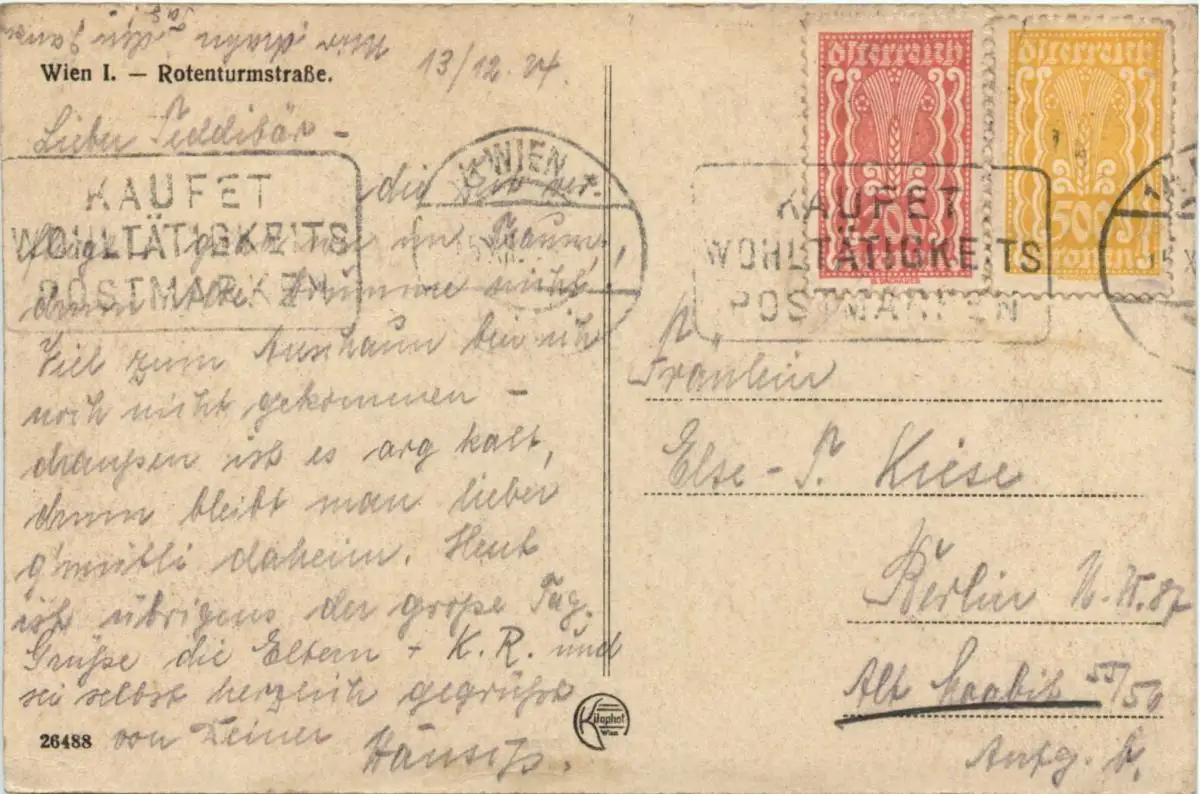 13/12.24.
Wien I. — Rotenturmstraße.
Lieber Teddibär –
die Zeit ver-
fliegt im Traum,
drum nicht.
Viel zum Anschaun bin ich
noch nicht gekommen –
draußen ist es arg kalt,
drum bleibt man lieber
g'mütli daheim. Heut
ist übrigens der große Tag.
Grüße die Eltern + K. R. und
sei selbst herzlich gegrüßt
von Deiner
26488
KAUFET
WOHLTÄTIGKEITS
POSTMARKEN
WIEN
Kilophot
Wien
Österreich
400
Österreich
500
Kronen
KAUFET
WOHLTÄTIGKEITS
POSTMARKEN
Fräulein
Else - T. Kiese
Berlin N.W. 87
Alt Moabit 55/56
Aufg. b.